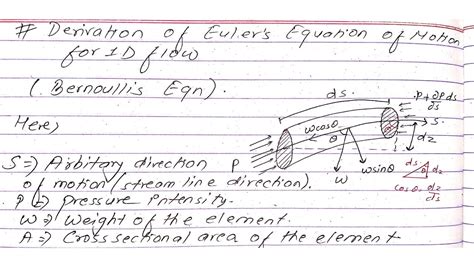 # Derivation of Euler's Equation of Motion
for 1D flow
(Bernoullis Eqn).
ds
P+∂P/∂s ds
Here,
S
wcosθ
θ
dz
S⇒ Arbitary direction
P
ds
θ
dz
of motion (stream line direction).
w
wsinθ
cosθ = dz/ds
P ⇒ pressure Intensity.
W ⇒ Weight of the element.
A ⇒ Cross sectional area of the element